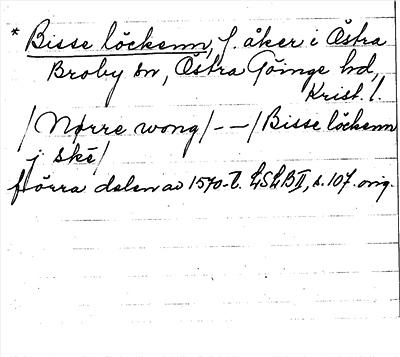 * Bisse löckenn, f. åker i Östra
Broby sn, Östra Göinge hd,
Krist. l.
/ Nørre wong / – – / Bisse löckenn
j skē /
förra delen av 1570-t. LSLB II, s. 107. orig.